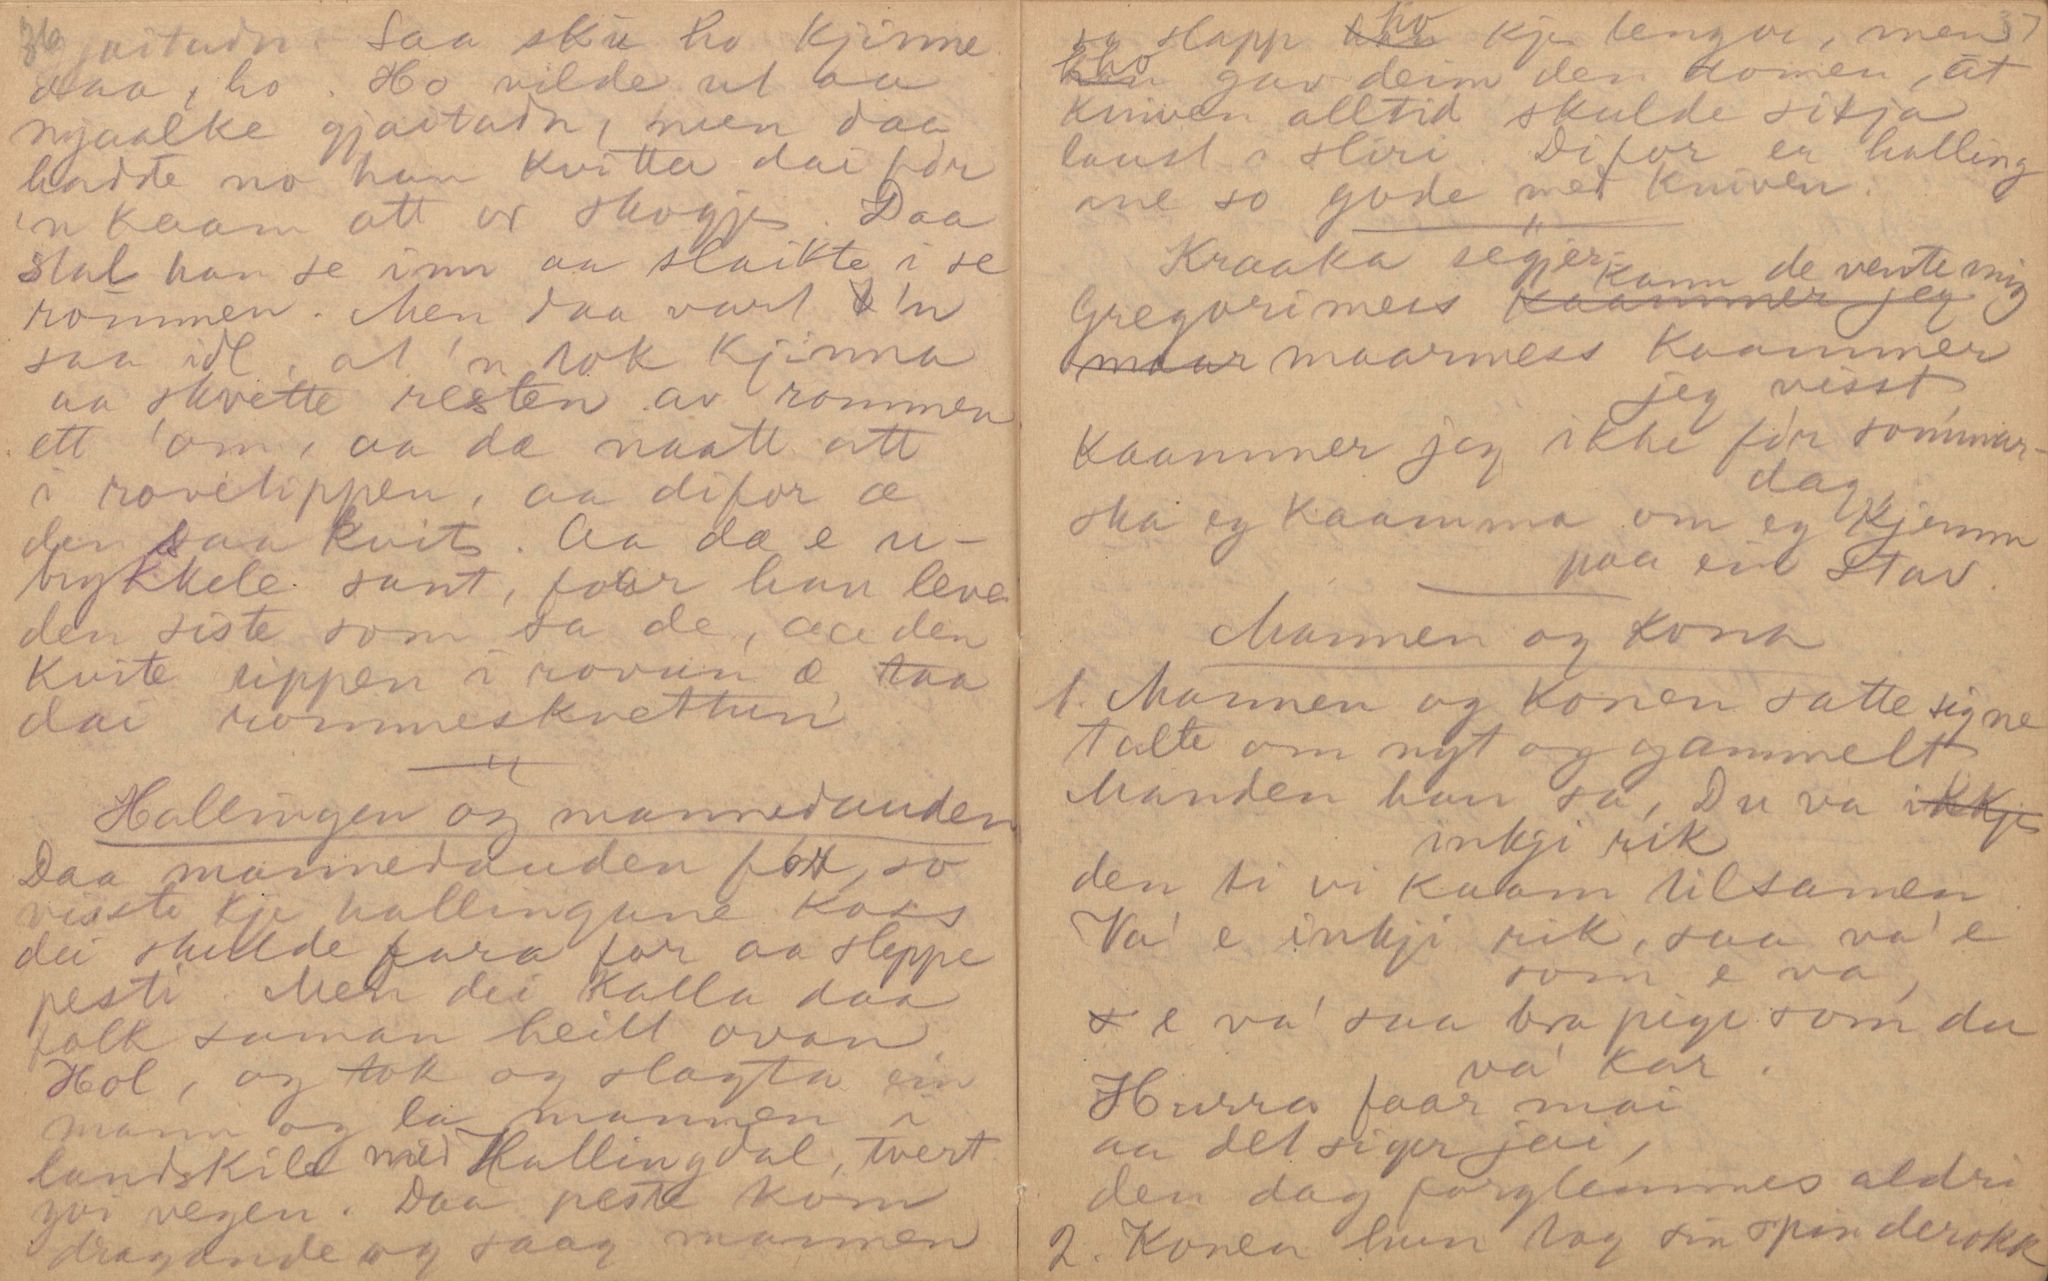 36
gjaitudn. Saa sku ho kjinne
daa, ho. Ho vilde ut aa
mjaalke gjaitadn, men daa
hadde no han kvitta dai før
'n kaam att or skogje. Daa
stal han se inn aa slaikte i se
rømmen. Men daa vart 'n
saa idl, at 'n tok kjinna
aa skvette resten av rømmen
ett 'om, aa dæ naatt att
i rovetippen, aa difor æ
den saa kvit. Aa dæ e u-
trykkele sant, for han leve
den siste som sa de, aa den
kvite tippen i rovun æ taa
dai rømmeskvettun
Hallingen og mannedauden
Daa mannedauden for, so
visste kje hallingane koss
dei skulde fara for aa sleppe
pesti. Men dei kalla daa
folk saman heilt ovan
Hol, og tok og slagta ein
mann og la mannen i
landskile med Hallingdal, tvert
yvi vegen. Daa peste kom
dragande og saag mannen
37
so slapp ho kje lengor, men
ho gav deim den domen, at
kniven alltid skulde sitja
laust i sliri. Difor er halling
ane so gode med kniven.
Kraaka segjer:
Gregorimess kann de vente mig
maarmess kaammer
jeg visst
kaammer jeg ikke før sommar-
dag
ska eg kaamma om eg kjemm
paa ein stav.
Mannen og kona
1. Mannen og konen satte sig ne
talte om nyt og gammelt
Manden han sa, Du va ikkje
inkji rik
den ti vi kaam tilsamen.
Va' e inkji rik, saa va' e
som e va,
e va' saa bra pige som du
va' kar.
Hurra faar mai
aa det siger jai,
den dag forglemmes aldri
2. Konen hun tog sin spinderokk